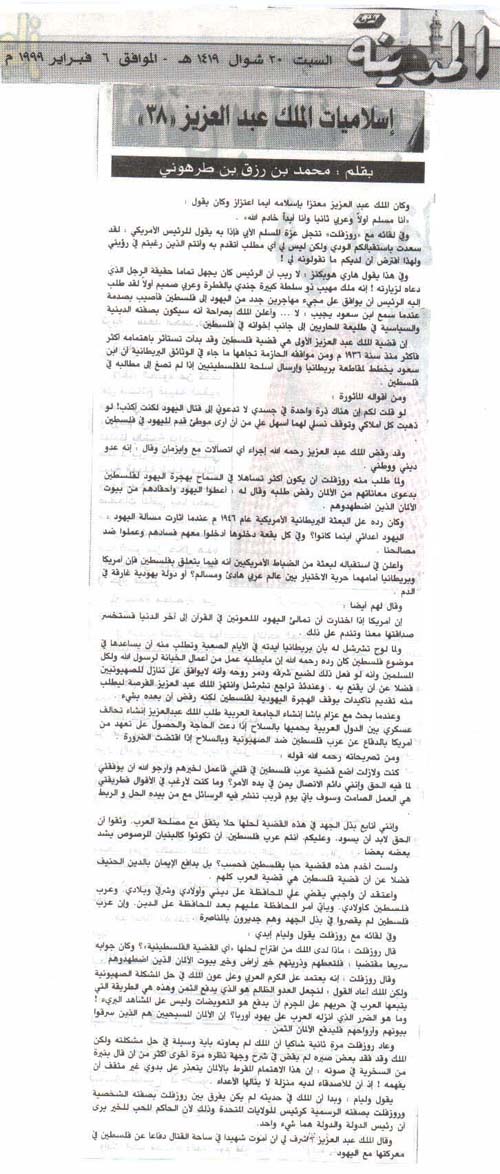 المدينة
السبت ٢٠ شوال ١٤١٩ هـ - الموافق ٦ فبراير ١٩٩٩ م
إسلاميات الملك عبد العزيز «٣٨»
بقلم : محمد بن رزق بن طرهوني
وكان الملك عبد العزيز معتزا بإسلامه أيما اعتزاز وكان يقول :
«أنا مسلم أولاً وعربي ثانيا وأنا أبداً خادم الله» .
وفي لقائه مع «روزفلت» تتجلى عزة المسلم الأبي فإذا به يقول للرئيس الأمريكي : لقد
سعدت باستقبالكم الودي ولكن ليس لي أي مطلب أتقدم به وأنتم الذين رغبتم في رؤيتي
ولهذا أفترض أن لديكم ما تقولونه لي !
وفي هذا يقول هاري هوبكنز : لا ريب أن الرئيس كان يجهل تماما حقيقة الرجل الذي
دعاه لزيارته ! إنه ملك مهيب ذو سلطة كبيرة جندي بالفطرة وعربي صميم أولا لقد طلب
إليه الرئيس أن يوافق على مجيء مهاجرين جدد من اليهود إلى فلسطين فأصيب بصدمة
عندما سمع ابن سعود يجيب : لا ... وأعلن الملك بصراحة أنه سيكون بصفته الدينية
والسياسية في طليعة المحاربين إلى جانب إخوانه في فلسطين.
إن قضية الملك عبد العزيز الأولى هي قضية فلسطين وقد بدأت تستأثر باهتمامه أكثر
فأكثر منذ سنة ١٩٣٦ م ومن مواقفه الحازمة تجاهها ما جاء في الوثائق البريطانية أن ابن
سعود يخطط لمقاطعة بريطانيا وإرسال أسلحة للفلسطينيين إذا لم تصغ إلى مطالبه في
فلسطين .
ومن أقواله المأثورة :
لو قلت لكم إن هناك ذرة واحدة في جسدي لا تدعوني إلى قتال اليهود لكنت أكذب! لو
ذهبت كل أملاكي وتوقف نسلي لهما أسهل علي من أن أرى موطئ قدم لليهود في فلسطين
.
وقد رفض الملك عبد العزيز رحمه الله إجراء أي اتصالات مع وايزمان وقال : إنه عدو
ديني ووطني .
ولما طلب منه روزفلت أن يكون أكثر تساهلا في السماح بهجرة اليهود لفلسطين
بدعوى معاناتهم من الألمان رفض طلبه وقال له : أعطوا اليهود وأحفادهم من بيوت
الألمان الذين اضطهدوهم .
وكان رده على البعثة البريطانية الأمريكية عام ١٩٤٦ م عندما أثارت مسألة اليهود .
اليهود أعدائي أينما كانوا؟ وفي كل بقعة دخلوها أدخلوا معهم فسادهم وعملوا ضد
مصالحنا .
وأعلن في استقباله لبعثة من الضباط الأمريكيين أنه فيما يتعلق بفلسطين فإن أمريكا
وبريطانيا أمامهما حرية الاختيار بين عالم عربي هادئ ومسالم؟ أو دولة يهودية غارقة في
الدم .
وقال لهم أيضا :
إن أمريكا إذا اختارت أن تمالئ اليهود الملعونين في القرآن إلى آخر الدنيا فستخسر
صداقتها معنا وتندم على ذلك .
ولما لوح تشرشل له بأن بريطانيا أيدته في الأيام الصعبة وتطلب منه أن يساعدها في
موضوع فلسطين كان رده رحمه الله إن مايطلبه عمل من أعمال الخيانة لرسول الله ولكل
المسلمين وأنه لو فعل ذلك لضيع شرفه ودمر روحه وأنه لايوافق على تنازل للصهيونيين
فضلا عن أن يقنع به . وعندئذ تراجع تشرشل وانتهز الملك عبد العزيز الفرصة ليطلب
منه تقديم تأكيدات بوقف الهجرة اليهودية لفلسطين لكنه رفض أن يعده بشيء .
وعندما بحث مع عزام باشا إنشاء الجامعة العربية طلب الملك عبدالعزيز إنشاء تحالف
عسكري بين الدول العربية يحميها بالسلاح إذا دعت الحاجة والحصول على تعهد من
أمريكا بالدفاع عن عرب فلسطين ضد الصهيونية وبالسلاح إذا اقتضت الضرورة .
ومن تصريحاته رحمه الله قوله :
كنت ولازلت أضع قضية عرب فلسطين في قلبي فأعمل لخيرهم وأرجو الله أن يوفقني
لما فيه الحق وإنني دائم الاتصال بمن في يده الأمر؟ وما كنت لأرغب في الأقوال فطريقتي
هي العمل الصامت وسوف يأتي يوم قريب ننشر فيه الرسائل مع من بيده الحل و الربط
.
وإنني أتابع بذل الجهد في هذه القضية لحلها حلا يتفق مع مصلحة العرب. وثقوا أن
الحق لابد أن يسود، وعليكم، أنتم عرب فلسطين، أن تكونوا كالبنيان المرصوص يشد
بعضه بعضا .
ولست أخدم هذه القضية حبا بفلسطين فحسب؟ بل بدافع الإيمان بالدين الحنيف
فضلا عن أن قضية فلسطين هي قضية العرب كلهم .
وأعتقد أن واجبي يقضي علي المحافظة على ديني وأولادي وشرفي وبلادي. وعرب
فلسطين كأولادي. ويأتي أمر المحافظة عليهم بعد المحافظة على الدين. وإن عرب
فلسطين لم يقصروا في بذل الجهد وهم جديرون بالمناصرة .
وفي لقائه مع روزفلت يقول وليام إيدي :
قال روزفلت : ماذا لدى الملك من اقتراح لحلها «أي القضية الفلسطينية»؟ وكان جوابه
سريعا مقتضبا : فلتعطهم وذريتهم خير أراض وخير بيوت الألمان الذين اضطهدوهم .
وقال روزفلت : إنه يعتمد على الكرم العربي وعلى عون الملك في حل المشكلة الصهيونية
ولكن الملك أعاد القول : لنجعل العدو الظالم هو الذي يدفع الثمن وهذه هي الطريقة التي
يتبعها العرب في حربهم على المجرم أن يدفع هو التعويضات وليس على المشاهد البريء !
وما هو الضرر الذي أنزله العرب على يهود أوربا؟ إن الألمان المسيحيين هم الذين سرقوا
بيوتهم وأرواحهم فليدفع الألمان الثمن .
وعاد روزفلت مرة ثانية شاكيا أن الملك لم يعاونه بأية وسيلة في حل مشكلته ولكن
الملك وقد فقد بعض صبره لم يفض في شرح وجهة نظره مرة أخرى أكثر من أن قال بنبرة
من السخرية في صوته : إن هذا الاهتمام المفرط بالألمان يتعذر على بدوي غير مثقف أن
يفهمه ! إذ أن للأصدقاء لديه منزلة لا ينالها الأعداء .
يقول وليام : وبدا أن الملك في حديثه لم يكن يفرق بين روزفلت بصفته الشخصية
وروزفلت بصفته الرسمية كرئيس للولايات المتحدة وذلك لأن الحاكم المحب للخير يرى
أن رئيس الدولة والدولة هما شيء واحد.
وقال الملك عبد العزيز : أشرف لي أن أموت شهيدا في ساحة القتال دفاعا عن فلسطين في
معركتها مع اليهود .